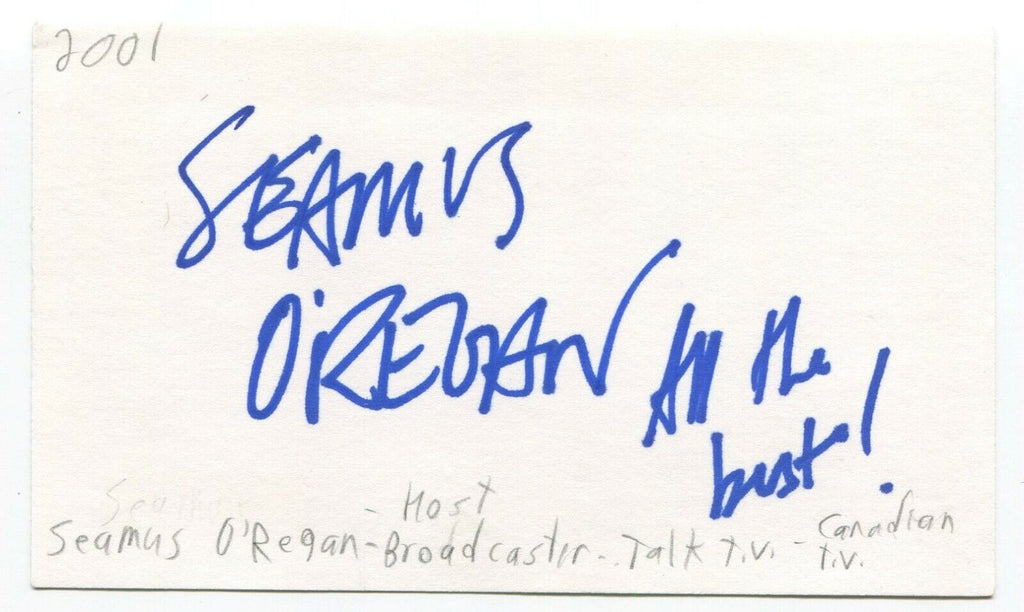 2001
SEAMUS
O'REGAN
All the
best!
- Host
Seamus O'Regan-Broadcaster-Talk T.V. - Canadian
T.V.